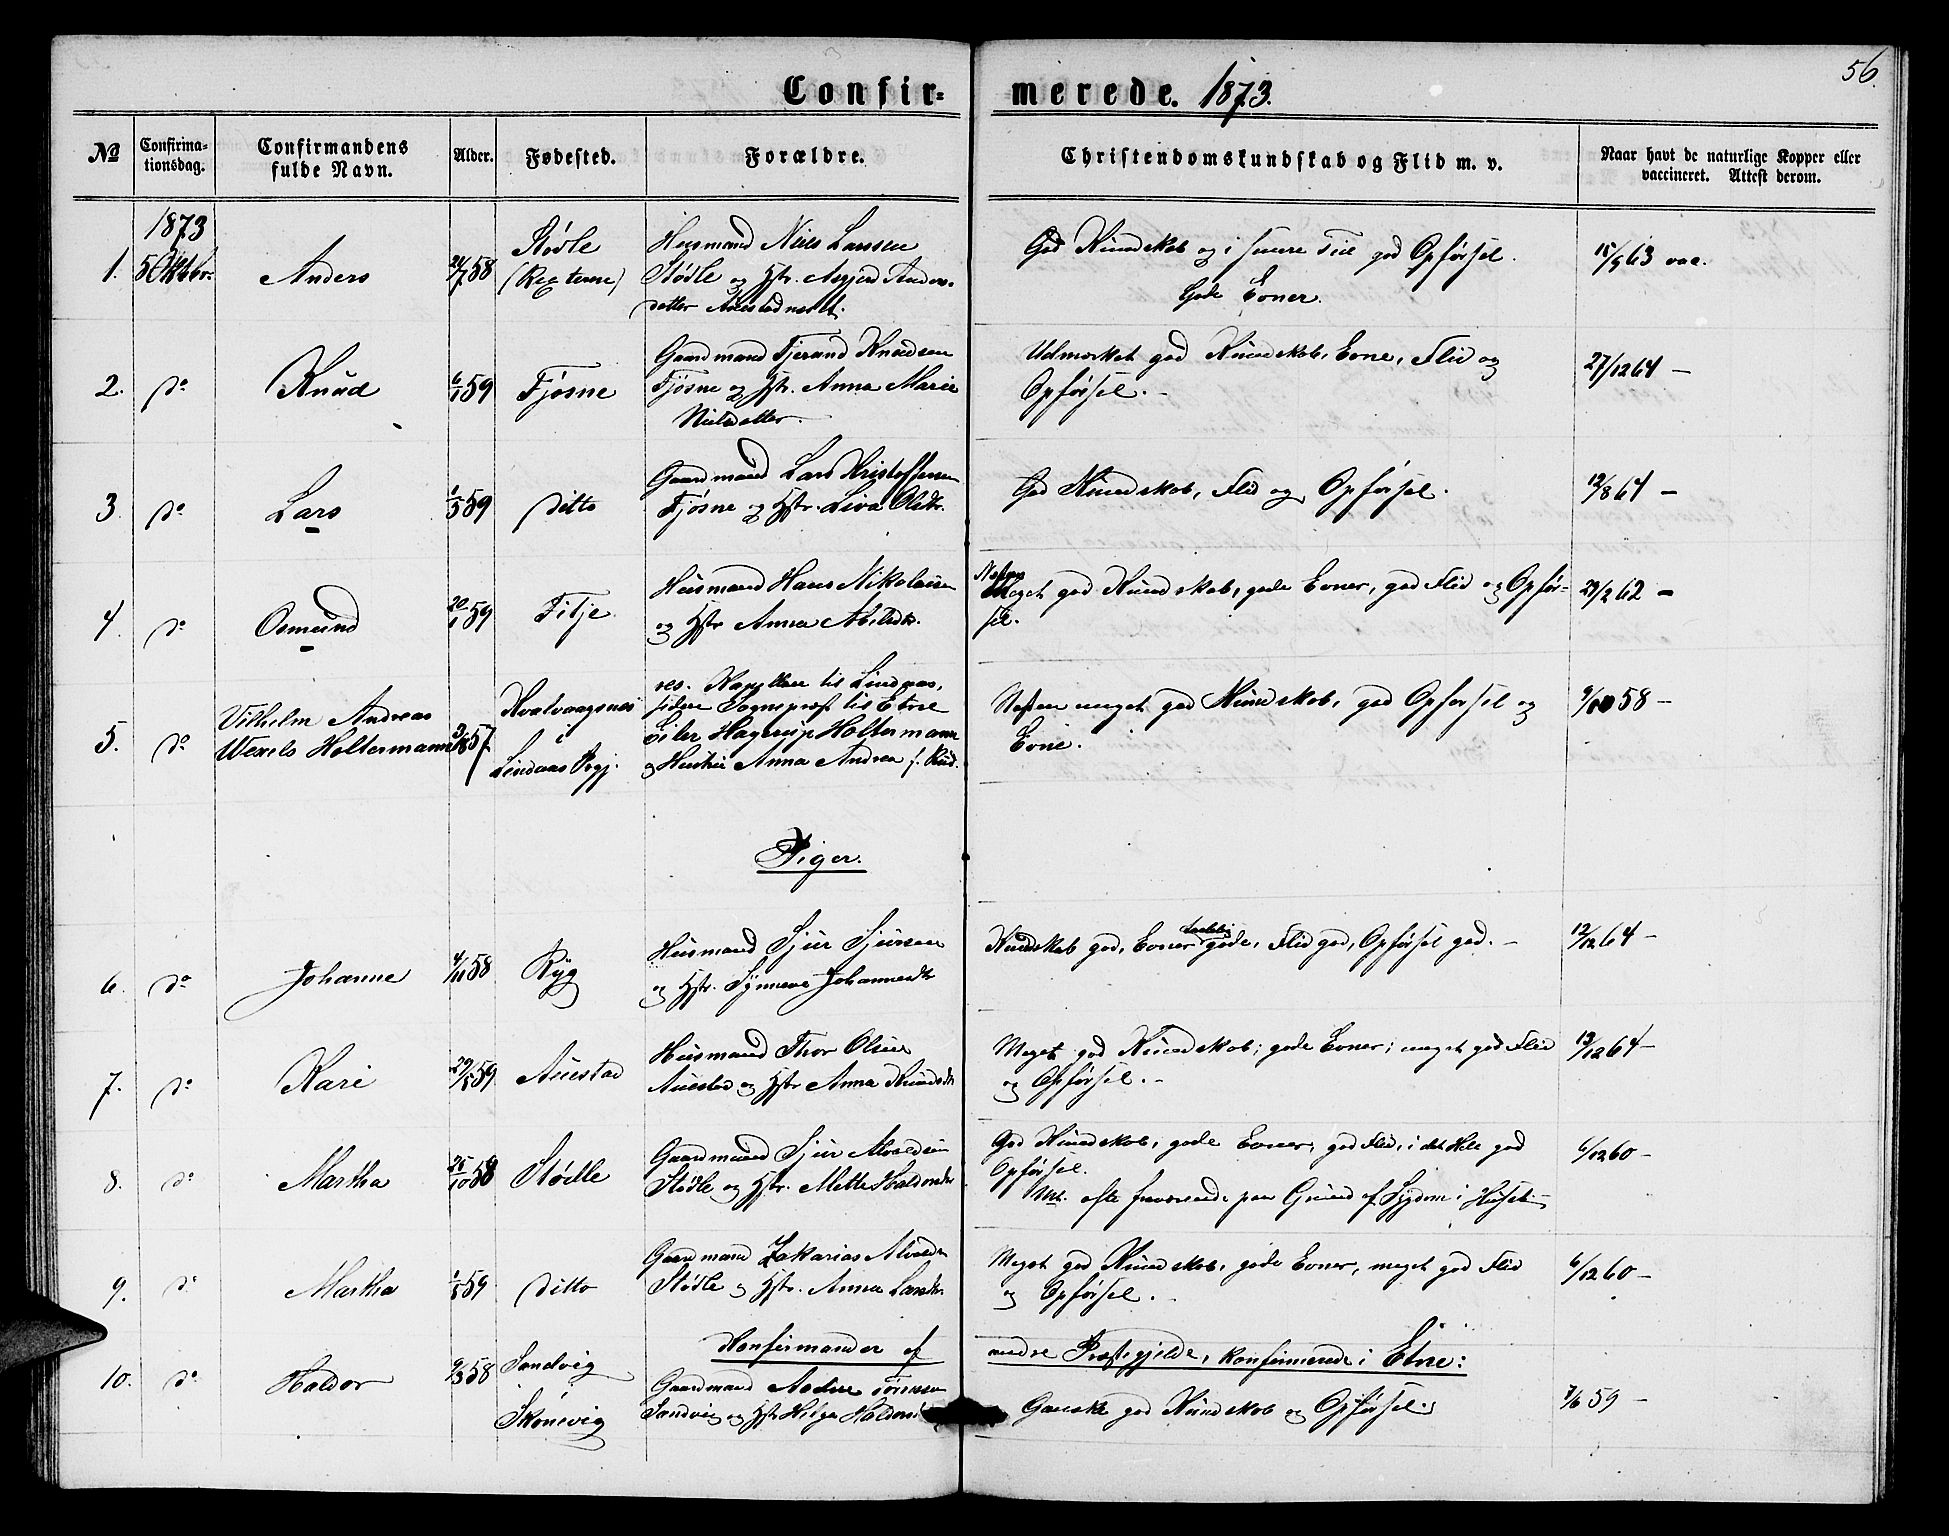 56.
Confir= merede. 1873.
No Confirma-tionsdag. Confirmandens fulde Navn. Alder. Fødested. Forældre. Christendomskundskab og Flid m. v. Naar havt de naturlige Kopper eller vaccineret. Attest derom.
1873
1. 5 Oktbr. Anders 58 Stødle
Husmand Niels Larssen
Stødle og Hstr. Anders-
datter
God Kundskab og i senere Tid god Opførsel.
Gode Evner.
15/5 63 vac.
2. do Knud 6/1 59 Fjøsne
Gaardmand Tjerand Knudsen
Fjøsne og Hstr. Anna Marie
Nilsdatter
Udmærket god Kundskab, Evne, Flid og
Opførsel. -
27/12 64 -
3. do Lars 1/5 59 ditto
Gaardmand Lars Kristoffersen
Fjøsne og Hstr. Siva Olsdtr.
God Kundskab, Flid og Opførsel.
12/8 64 -
4. do Osmund 20/1 59 Fitje
Husmand Hans Nikolaisen
og Hstr Anna
Næsten
Meget god Kundskab, gode Evner, god Flid og Opfør-
sel.
29/2 62 -
5. do Vilhelm Andreas
Wexels Holtermann 57.
Hvalvaagsnes
i
Lindaas Prgj.
res. Kapellan til Lindaas,
sidere Sognepræst til Etne
Eiler Hagerup Holtermann
og Hustru Anna Andrea f. Rud.
Næsten meget god Kundskab, god Opførsel og
Evne.
58 -
Piger.
6. do Johanne 4/11 58 Ryg
Husmand Sjur Sjursen
og Hstr. Synneva Johannesdtr
Kundskab god, Evner gode, Flid god, Opførsel god. -
12/12 64 -
7. do Kari 59 Auestad
Husmand Thor Olsen
Auestad og Hstr Anna Knudsdtr
Meget god Kundskab; gode Evner; meget god Flid
og Opførsel. -
13/12 64 -
8. do Martha 25/10 58 Stødle
Gaardmand Sjur
Stødle og Hstr. Mette Haldorsdtr
God Kundskab, gode Evner, god Flid, i det Hele god
Opførsel.
Nb. ofte fraværende paa Grund af Sygdom i Huset. -
6/12 60 -
9. do Martha 59 ditto
Gaardmand Zakarias
Stødle og Hstr. Anna Larsdtr.
Meget god Kundskab, gode Evner, meget god Flid
og Opførsel. -
6/12 60 -
Konfirmander af andre Præstegjelde, konfirmerede i Etne:
10. do Haldor 9/3 58 Sandvig
Skonevig
Gaardmand
Sandvig og Hstr Helga
Ganske god Kundskab og Opførsel.
7/6 59 -